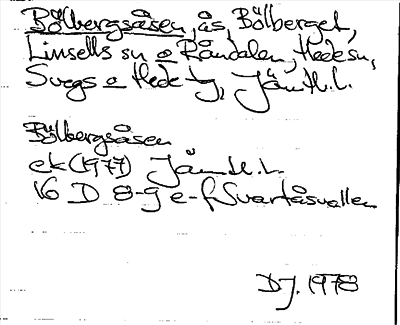 Bölbergsåsen, ås, Bölberget,
Linsells sn o Råndalen, Hede sn,
Svegs o Hede tg, Jämtl. l.
Bölbergsåsen
ek (1977) Jämtl. l.
16 D 8-g e-f Svartåsvallen
DJ. 1978